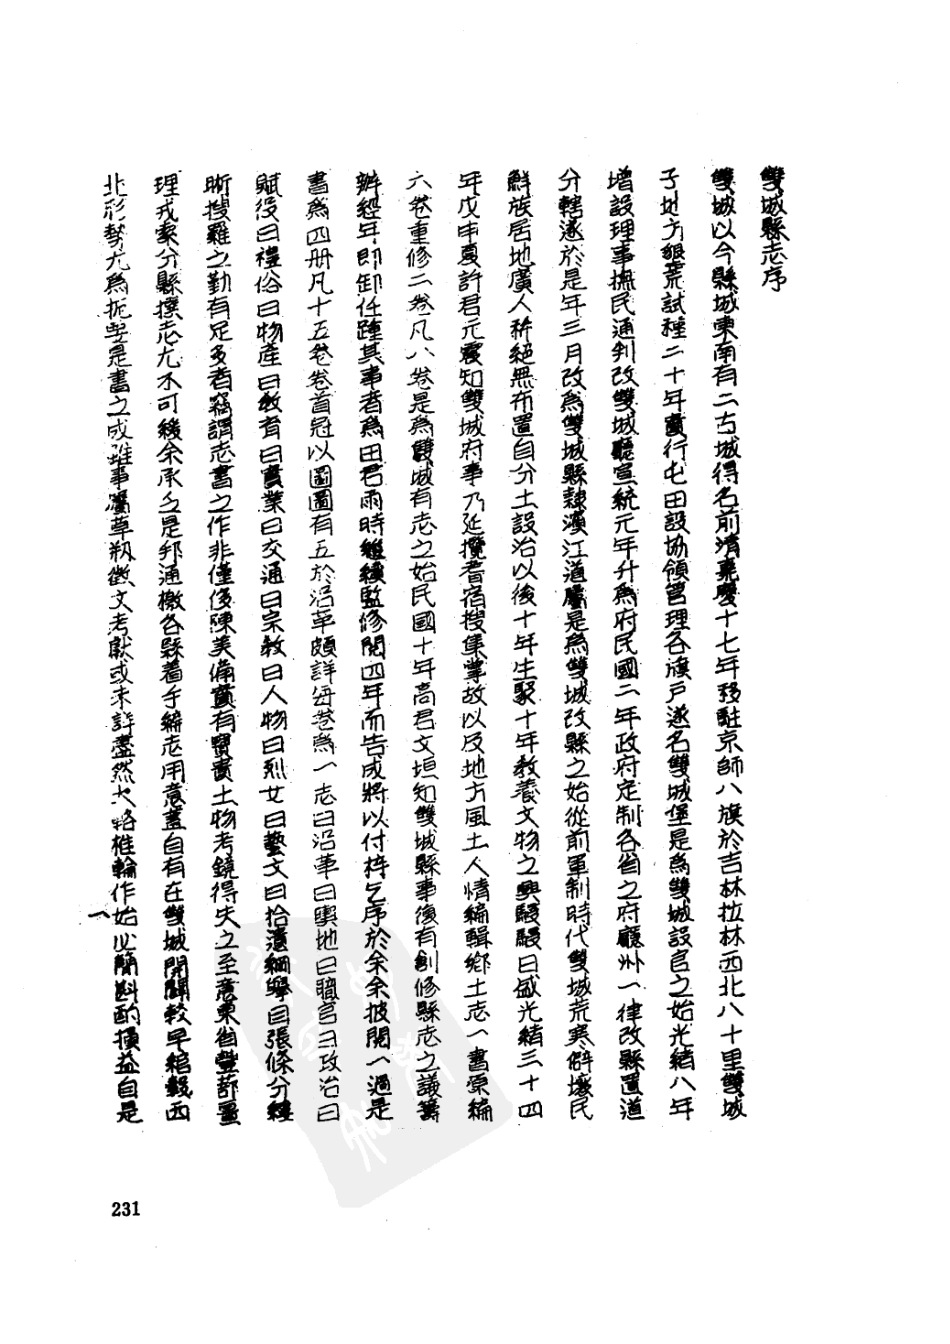 雙城縣志序
雙城以今縣城東南有二古城得名前清嘉慶十七年移駐京師八旗於吉林拉林西北八十里雙城
子地方報荒試種二十年實行屯田設協領管理各旗戶遂名雙城堡是為雙城設官之始光緒八年
增設理事撫民通判改雙城廳宣統元年升為府民國二年政府定制各省之府廳州一律改縣置道
分轄遂於是年三月改為雙城縣隸濱江道屬是為雙城改縣之始從前軍制時代雙城荒寒僻壤民
鮮族居地廣人稀絕無布置自分土設治以後十年生聚十年教養文物之興駸駸日盛光緒三十四
年戊申夏許君元震知雙城府事乃延攬耆宿搜集掌故以及地方風土人情編輯鄉土志一書原編
六卷重修二卷凡八卷是為雙城有志之始民國十年高君文垣知雙城縣事復有創修縣志之議籌
辦經年即卸任踵其事者為田君雨時繼續監修閱四年而告成將以付梓乞序於余余披閱一過是
書為四冊凡十五卷卷首冠以圖圖有五於沿革頗詳每卷為一志曰沿革曰輿地曰職官曰政治曰
賦役曰禮俗曰物產曰教育曰實業曰交通曰宗教曰人物曰列女曰藝文曰拾遺綱舉目張條分縷
晰搜羅之勤有足多者竊謂志書之作非僅侈陳美備實有覽責土物考鏡得失之至意東省豐蔀畺
理戎索分縣撰志尤不可緩余承乏是邦通檄各縣着手編志用意蓋自有在雙城開闢較早綰轂西
北形勢尤為扼要是書之成雖事屬草剏徵文考獻或未詳盡然大輅椎輪作始必簡斟酌損益自是
一
231